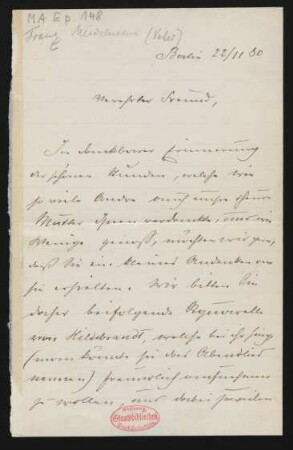 MA Ep. 148
Franz Mendelssohn
Berlin 22/11 80
Verehrter Freund,
In dankbarer Erinnerung
der schönen Stunden, welche wie
so viele Andre auch unsre theure
Mutter Ihnen verdankte, und wie
Wenige genoss, möchten wir gern,
daß Sie ein kleines Andenken von
ihr erhielten. Wir bitten Sie
daher beifolgende Aquarelle
von Hildebrandt, welche bei ihr hing
(man könnte sie das Abendlied
nennen) freundlich annehmen
zu wollen, und dabei zuweilen
Staatsbibliothek